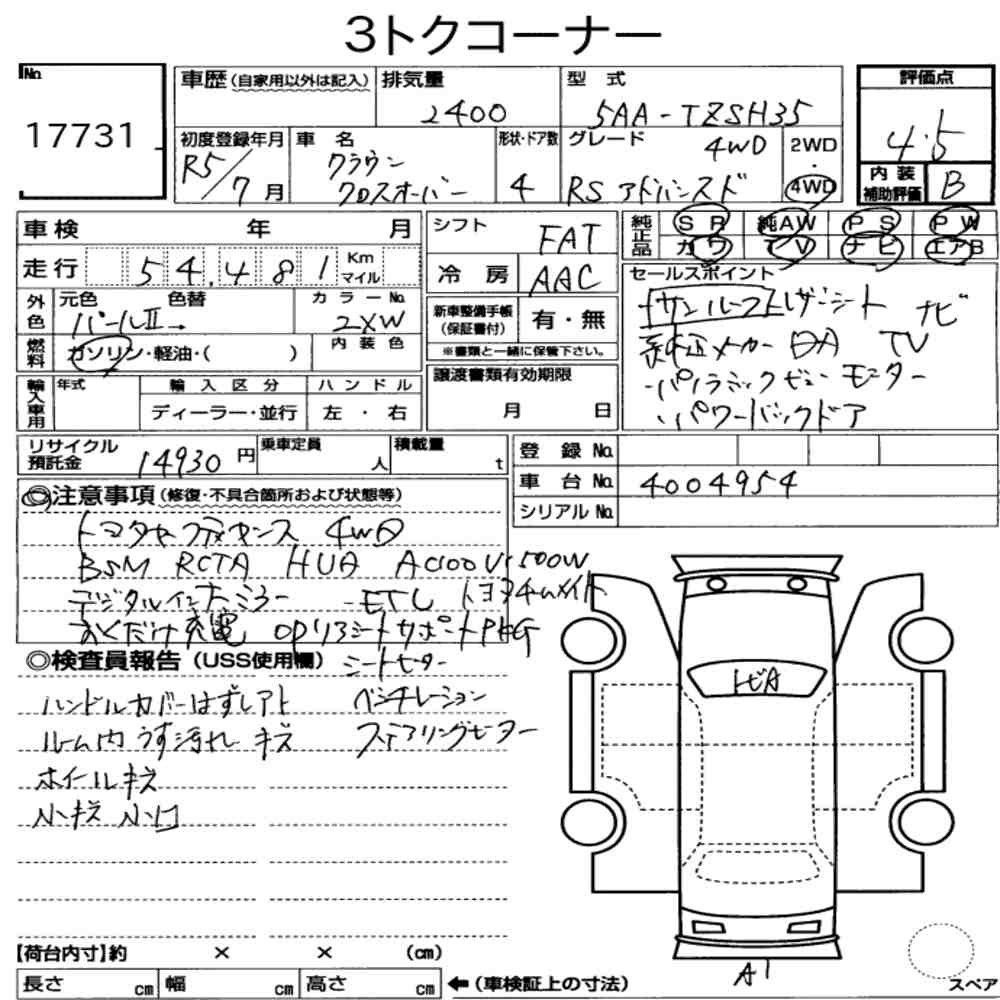 3トクコーナー
No.
17731
車歴(自家用以外は記入)
排気量
2400
型 式
5AA-TZSH35
評価点
4.5
初度登録年月
R5/7月
車 名
クラウン
クロスオーバー
形状・ドア数
4
グレード
4WD
RS アドバンスド
2WD
・
4WD
内 装
補助評価
B
車検 年 月
走行 54,481 Km マイル
シフト
FAT
冷 房
AAC
純正品
SR 純AW PS PW
カワ TV ナビ エアB
外色
元色 色替
パールⅡ→
カラーNo.
2XW
燃料
ガソリン・軽油・( )
内 装 色
新車整備手帳
(保証書付)
有・無
※書類と一緒に保管下さい。
セールスポイント
・サンルーフ・レザーシート
純正メーカー DA ナビ TV
・パノラミックビューモニター
・パワーバックドア
輸入車用
年式
輸 入 区 分
ディーラー・並行
ハ ン ド ル
左 ・ 右
譲渡書類有効期限
月 日
リサイクル
預託金
14930円
乗車定員
人
積載量
t
登 録 No.
車 台 No.
4004954
シリアルNo.
◎注意事項(修復・不具合箇所および状態等)
トヨタセーフティセンス 4WD
BSM RCTA HUD AC100V1500W
デジタルインナーミラー ETC トヨタチームメイト
おくだけ充電 OPリヤシートサポートPKG
◎検査員報告(USS使用欄)
シートヒーター
ハンドルカバーはずしアト ベンチレーション
ルーム内うす汚れ キズ ステアリングヒーター
ホイールキズ
小キズ 小凹
トビA
A1
スペア
【荷台内寸】約 × × (cm)
長さ cm 幅 cm 高さ cm ←(車検証上の寸法)